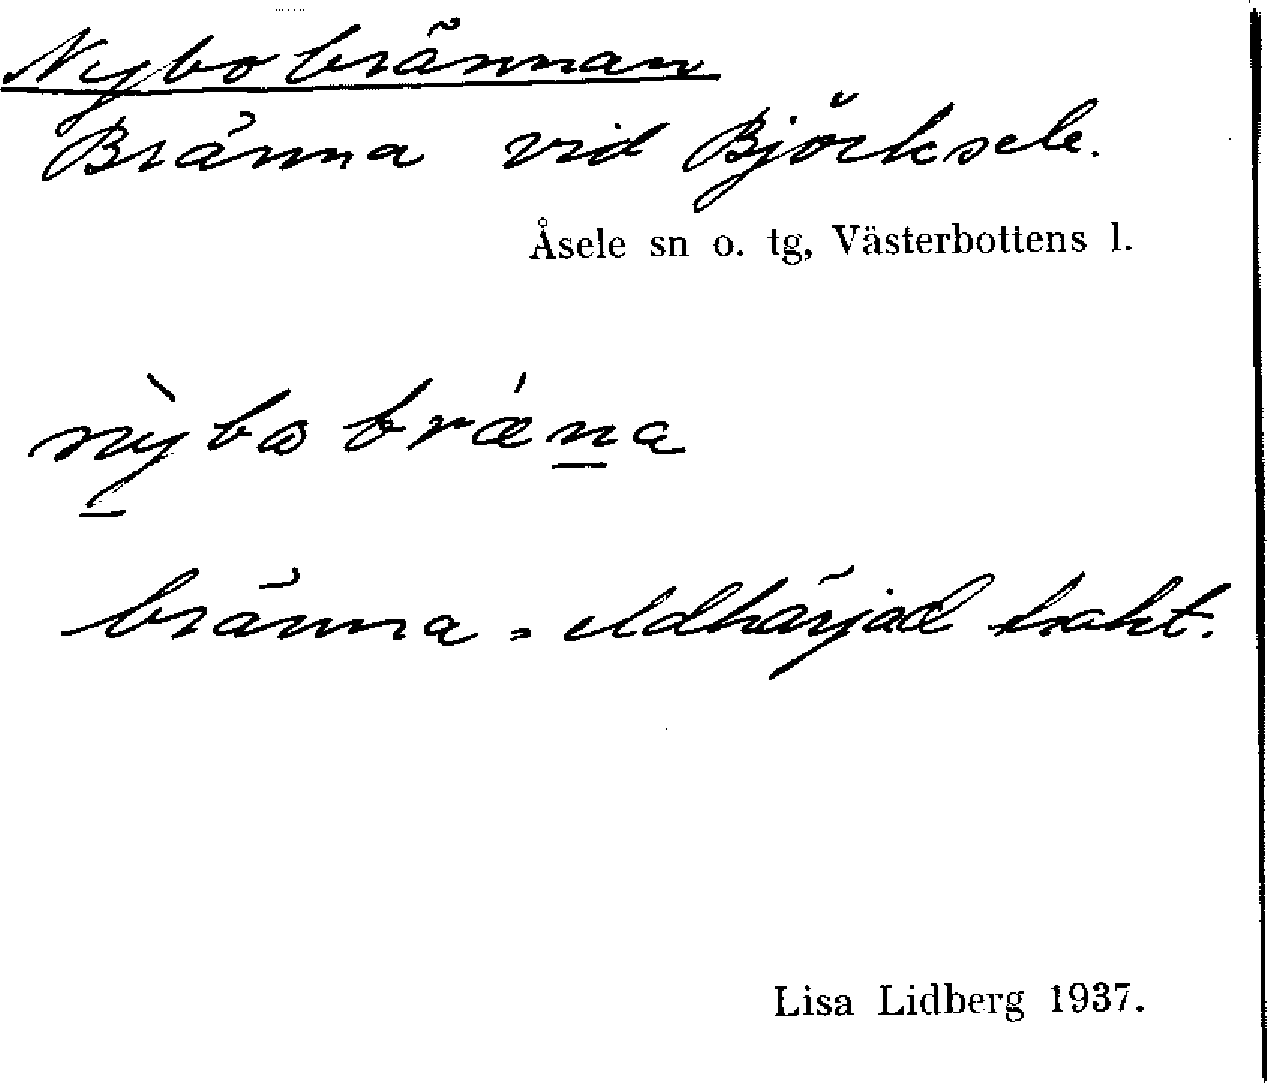 Nybobrännan
Bränna vid Björksele.
Åsele sn o. tg, Västerbottens l.
nỳbobrǽna
bränna = eldhärjad trakt.
Lisa Lidberg 1937.